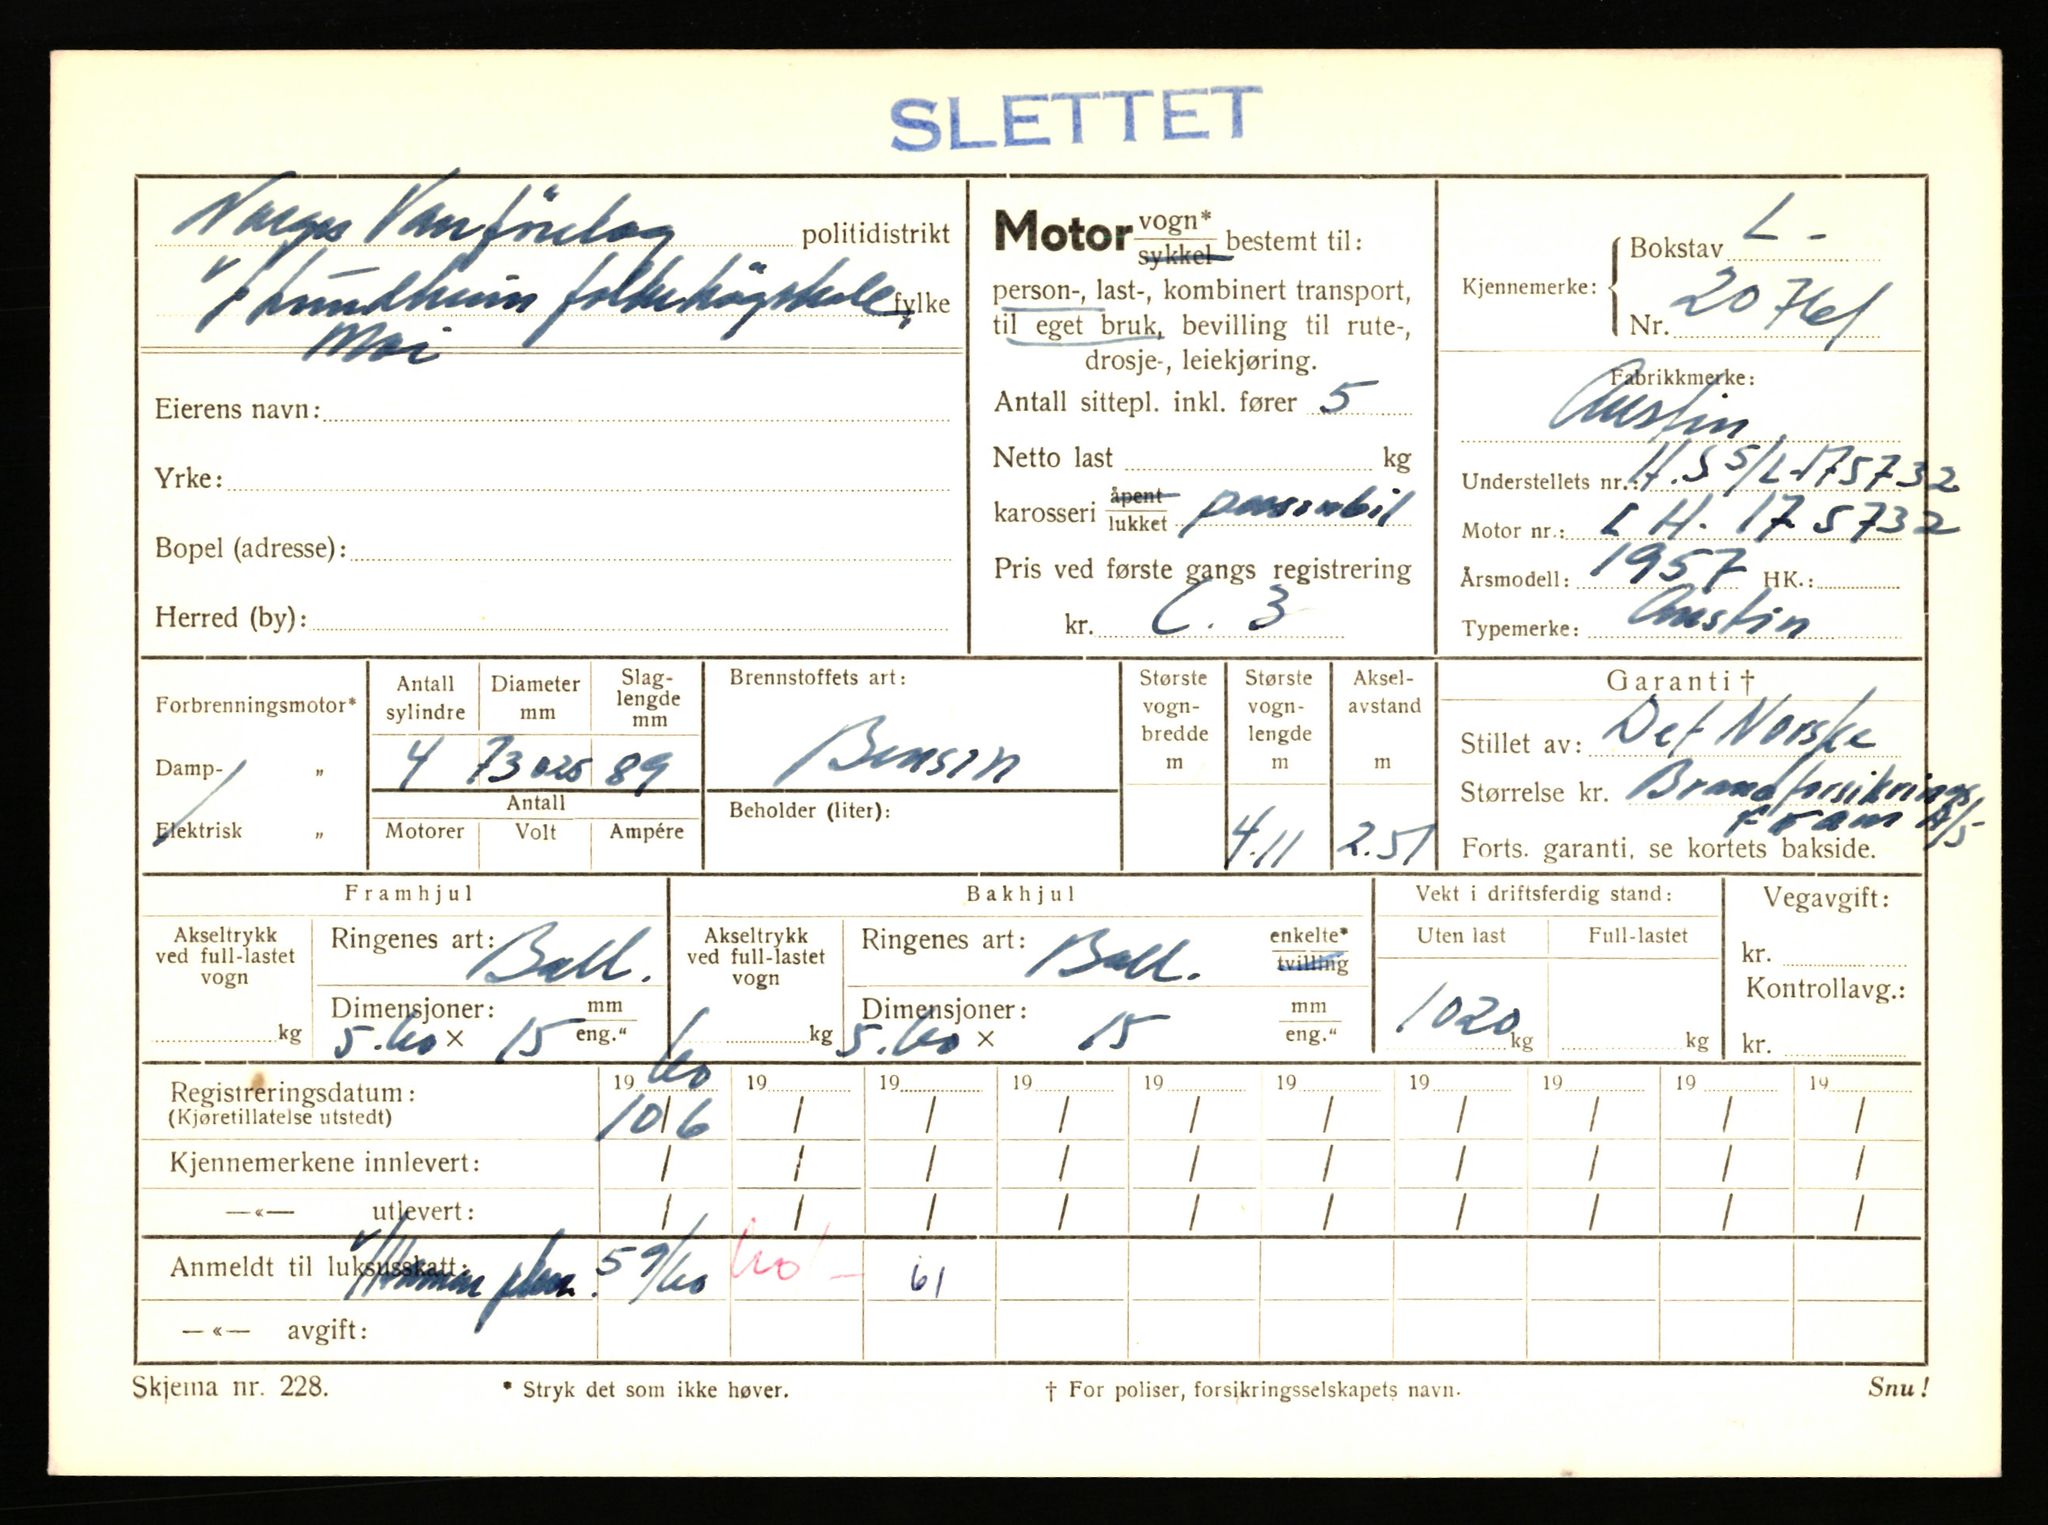 SLETTET
Norges Vanförelag politidistrikt
v/ Lundheim folkehögskole, fylke
Moi
Eierens navn:
Yrke:
Bopel (adresse):
Herred (by):
Motor vogn* sykkel bestemt til:
person-, last-, kombinert transport,
til eget bruk, bevilling til rute-,
drosje-, leiekjøring.
Antall sittepl. inkl. fører 5
Netto last kg
karosseri åpent lukket personbil
Pris ved første gangs registrering
kr. C. 3
Kjennemerke: Bokstav L -
Nr. 20761
Fabrikkmerke:
Austin
Understellets nr.: H.S5/L-175732
Motor nr.: L H. 175732
Årsmodell: 1957 HK.:
Typemerke: Austin
Forbrenningsmotor*
Damp- „
Elektrisk „
Antall sylindre Diameter mm Slag-lengde mm
4 73025 89
Antall
Motorer Volt Ampére
Brennstoffets art:
Bensin
Beholder (liter):
Største vogn-bredde m
Største vogn-lengde m
4.11
Aksel-avstand m
2.51
Garanti †
Stillet av: Det Norske
Størrelse kr. Brandforsikrings
Fram A/S
Forts. garanti, se kortets bakside.
Framhjul
Akseltrykk ved full-lastet vogn
kg
Ringenes art: Ball.
Dimensjoner: mm
5.60 × 15 eng.“
Bakhjul
Akseltrykk ved full-lastet vogn
kg
Ringenes art: Ball. enkelte* tvilling
Dimensjoner: mm
5.60 × 15 eng.“
Vekt i driftsferdig stand:
Uten last Full-lastet
1020 kg kg
Vegavgift:
kr.
Kontrollavg.:
kr.
Registreringsdatum: 19 60 19 19 19 19 19 19 19 19 19
(Kjøretillatelse utstedt) 10/6 / / / / / / / / /
Kjennemerkene innlevert: / / / / / / / / / /
—«— utlevert: / / / / / / / / / /
Anmeldt til luksusskatt: 59/60 60 - 61
—«— avgift:
Skjema nr. 228. * Stryk det som ikke høver. † For poliser, forsikringsselskapets navn. Snu!